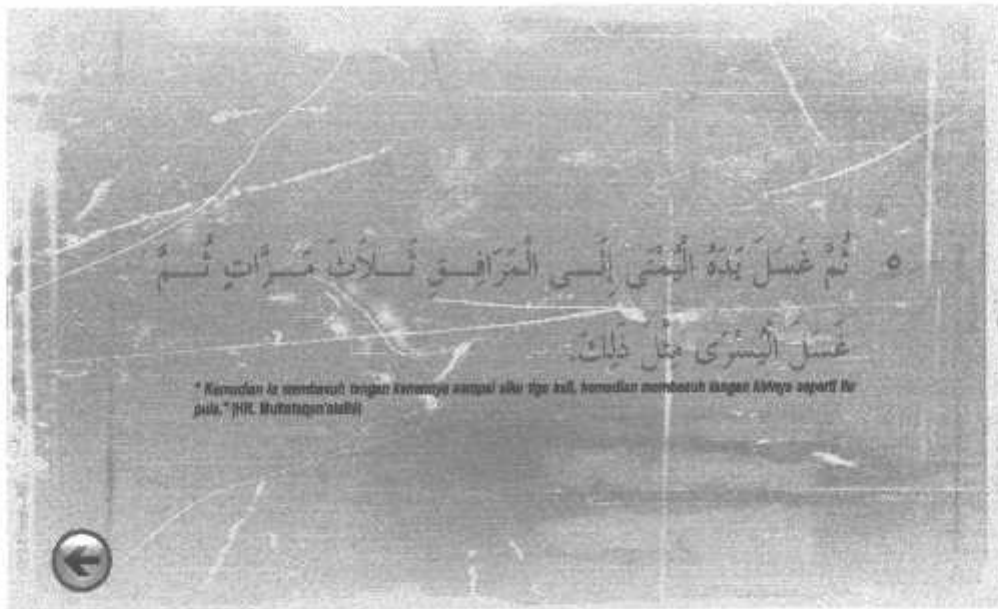 ٥ ثُمَّ غَسَلَ يَدَهُ الْيُمْنَى إِلَـــى الْمَرَافِـــقِ ثَـــلاَثَ مَـــرَّاتٍ ثُـــمَّ
غَسَلَ الْيُسْرَى مِثْلَ ذَلِكَ.
" Kemudian ia membasuh tangan kanannya sampai siku tiga kali, kemudian membasuh tangan kirinya seperti itu
pula." (HR. Muttafaqun'alaihi)